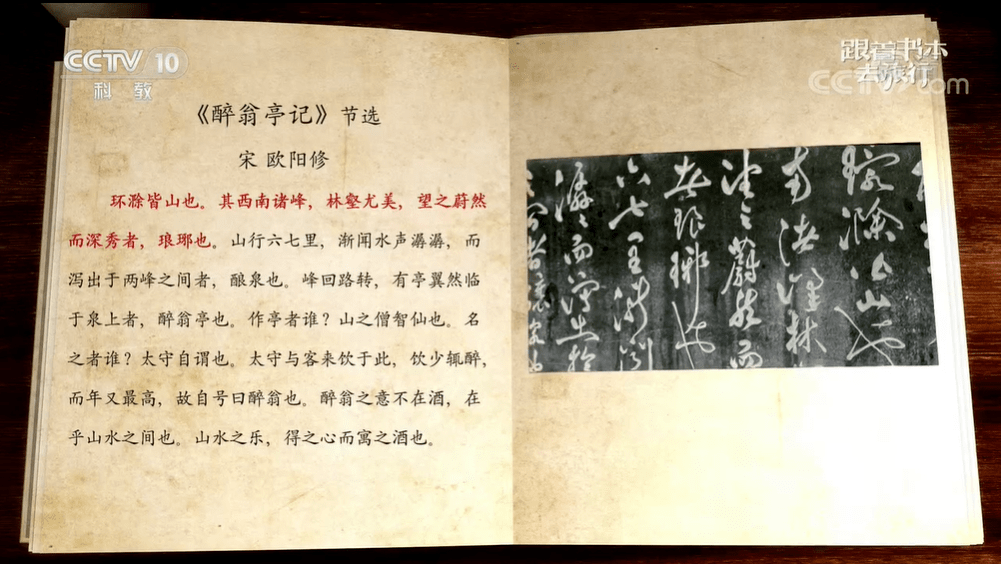 CCTV 10
科教
跟着书本
去旅行
CCTV.com
《醉翁亭记》节选
宋 欧阳修
环滁皆山也。其西南诸峰，林壑尤美，望之蔚然
而深秀者，琅琊也。山行六七里，渐闻水声潺潺，而
泻出于两峰之间者，酿泉也。峰回路转，有亭翼然临
于泉上者，醉翁亭也。作亭者谁？山之僧智仙也。名
之者谁？太守自谓也。太守与客来饮于此，饮少辄醉，
而年又最高，故自号曰醉翁也。醉翁之意不在酒，在
乎山水之间也。山水之乐，得之心而寓之酒也。
环滁皆山也
南诸峰林
望之蔚然而
者琅琊也
六七里渐闻
潺潺而泻出於